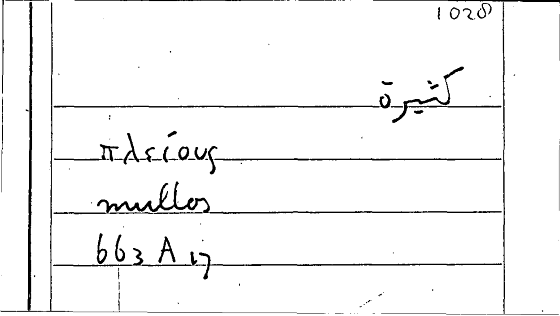 1028
كثيرة
πλείους
multos
663 A 17